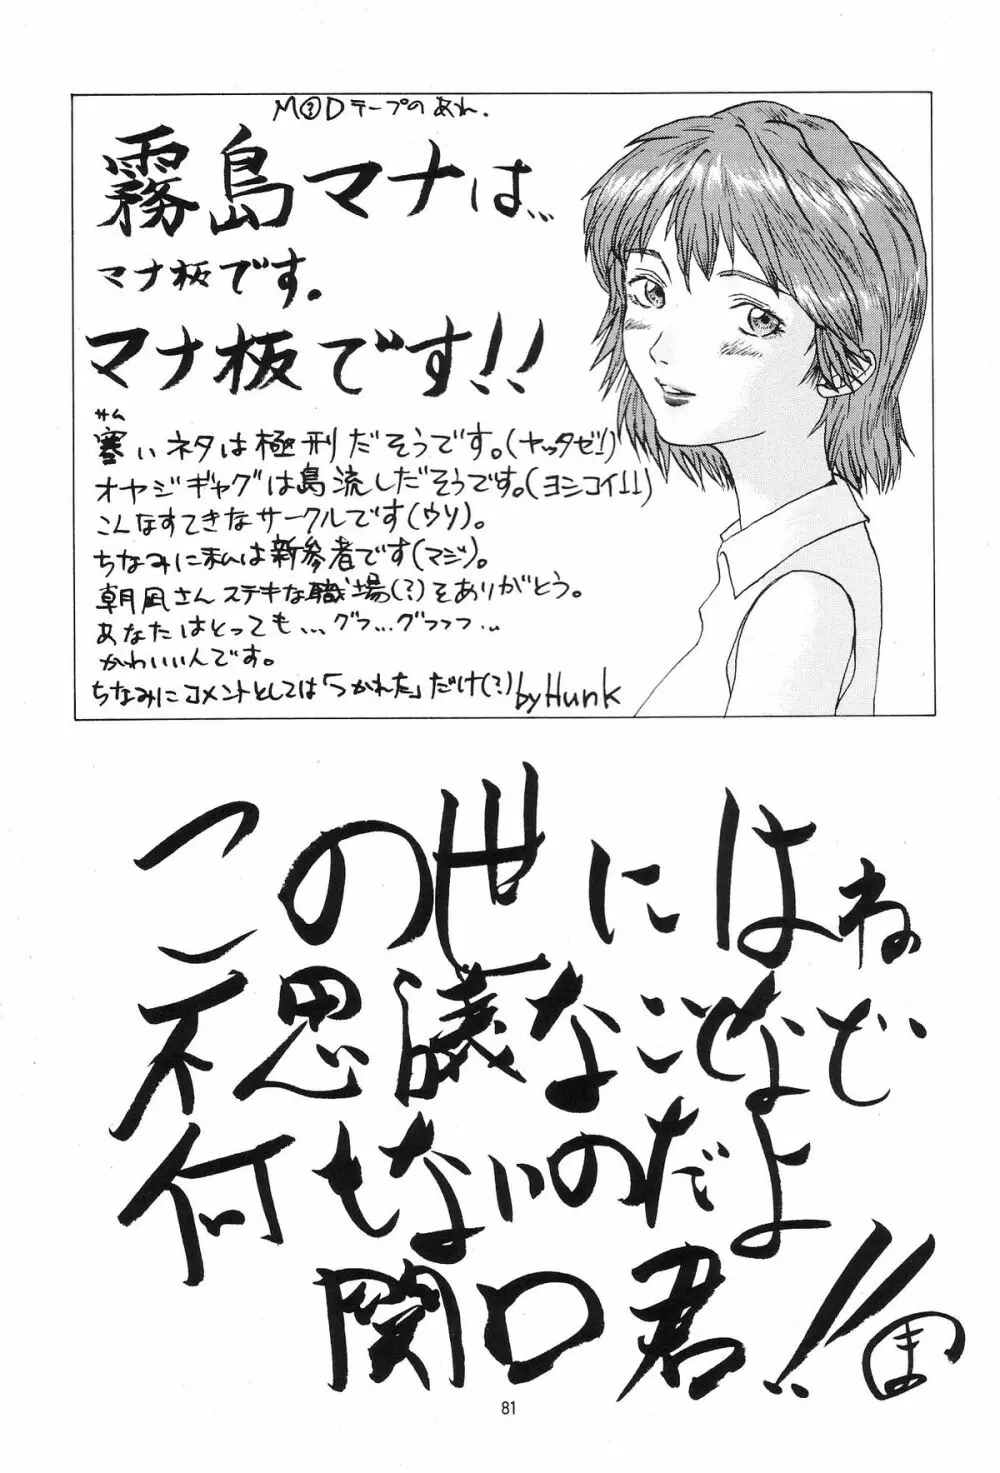 M?Dテープのあれ.
霧島マナは...
マナ板です。
マナ板です!!
サム
塞いネタは極刑だそうです。(ヤッタゼ!)
オヤジギャグは島流しだそうです。(ヨシコイ!!)
こんなすてきなサークルです(ウソ)。
ちなみに私は新参者です(マジ)。
朝凪さんステキな職場(?)をありがとう。
あなたはとっても...グフ...グフフフ...
かわいい人です。
ちなみにコメントとしては「つかれた」だけ(?)
by Hunk
この世にはね
不思議なことなど
何もないのだよ
関口君!!
ま
81